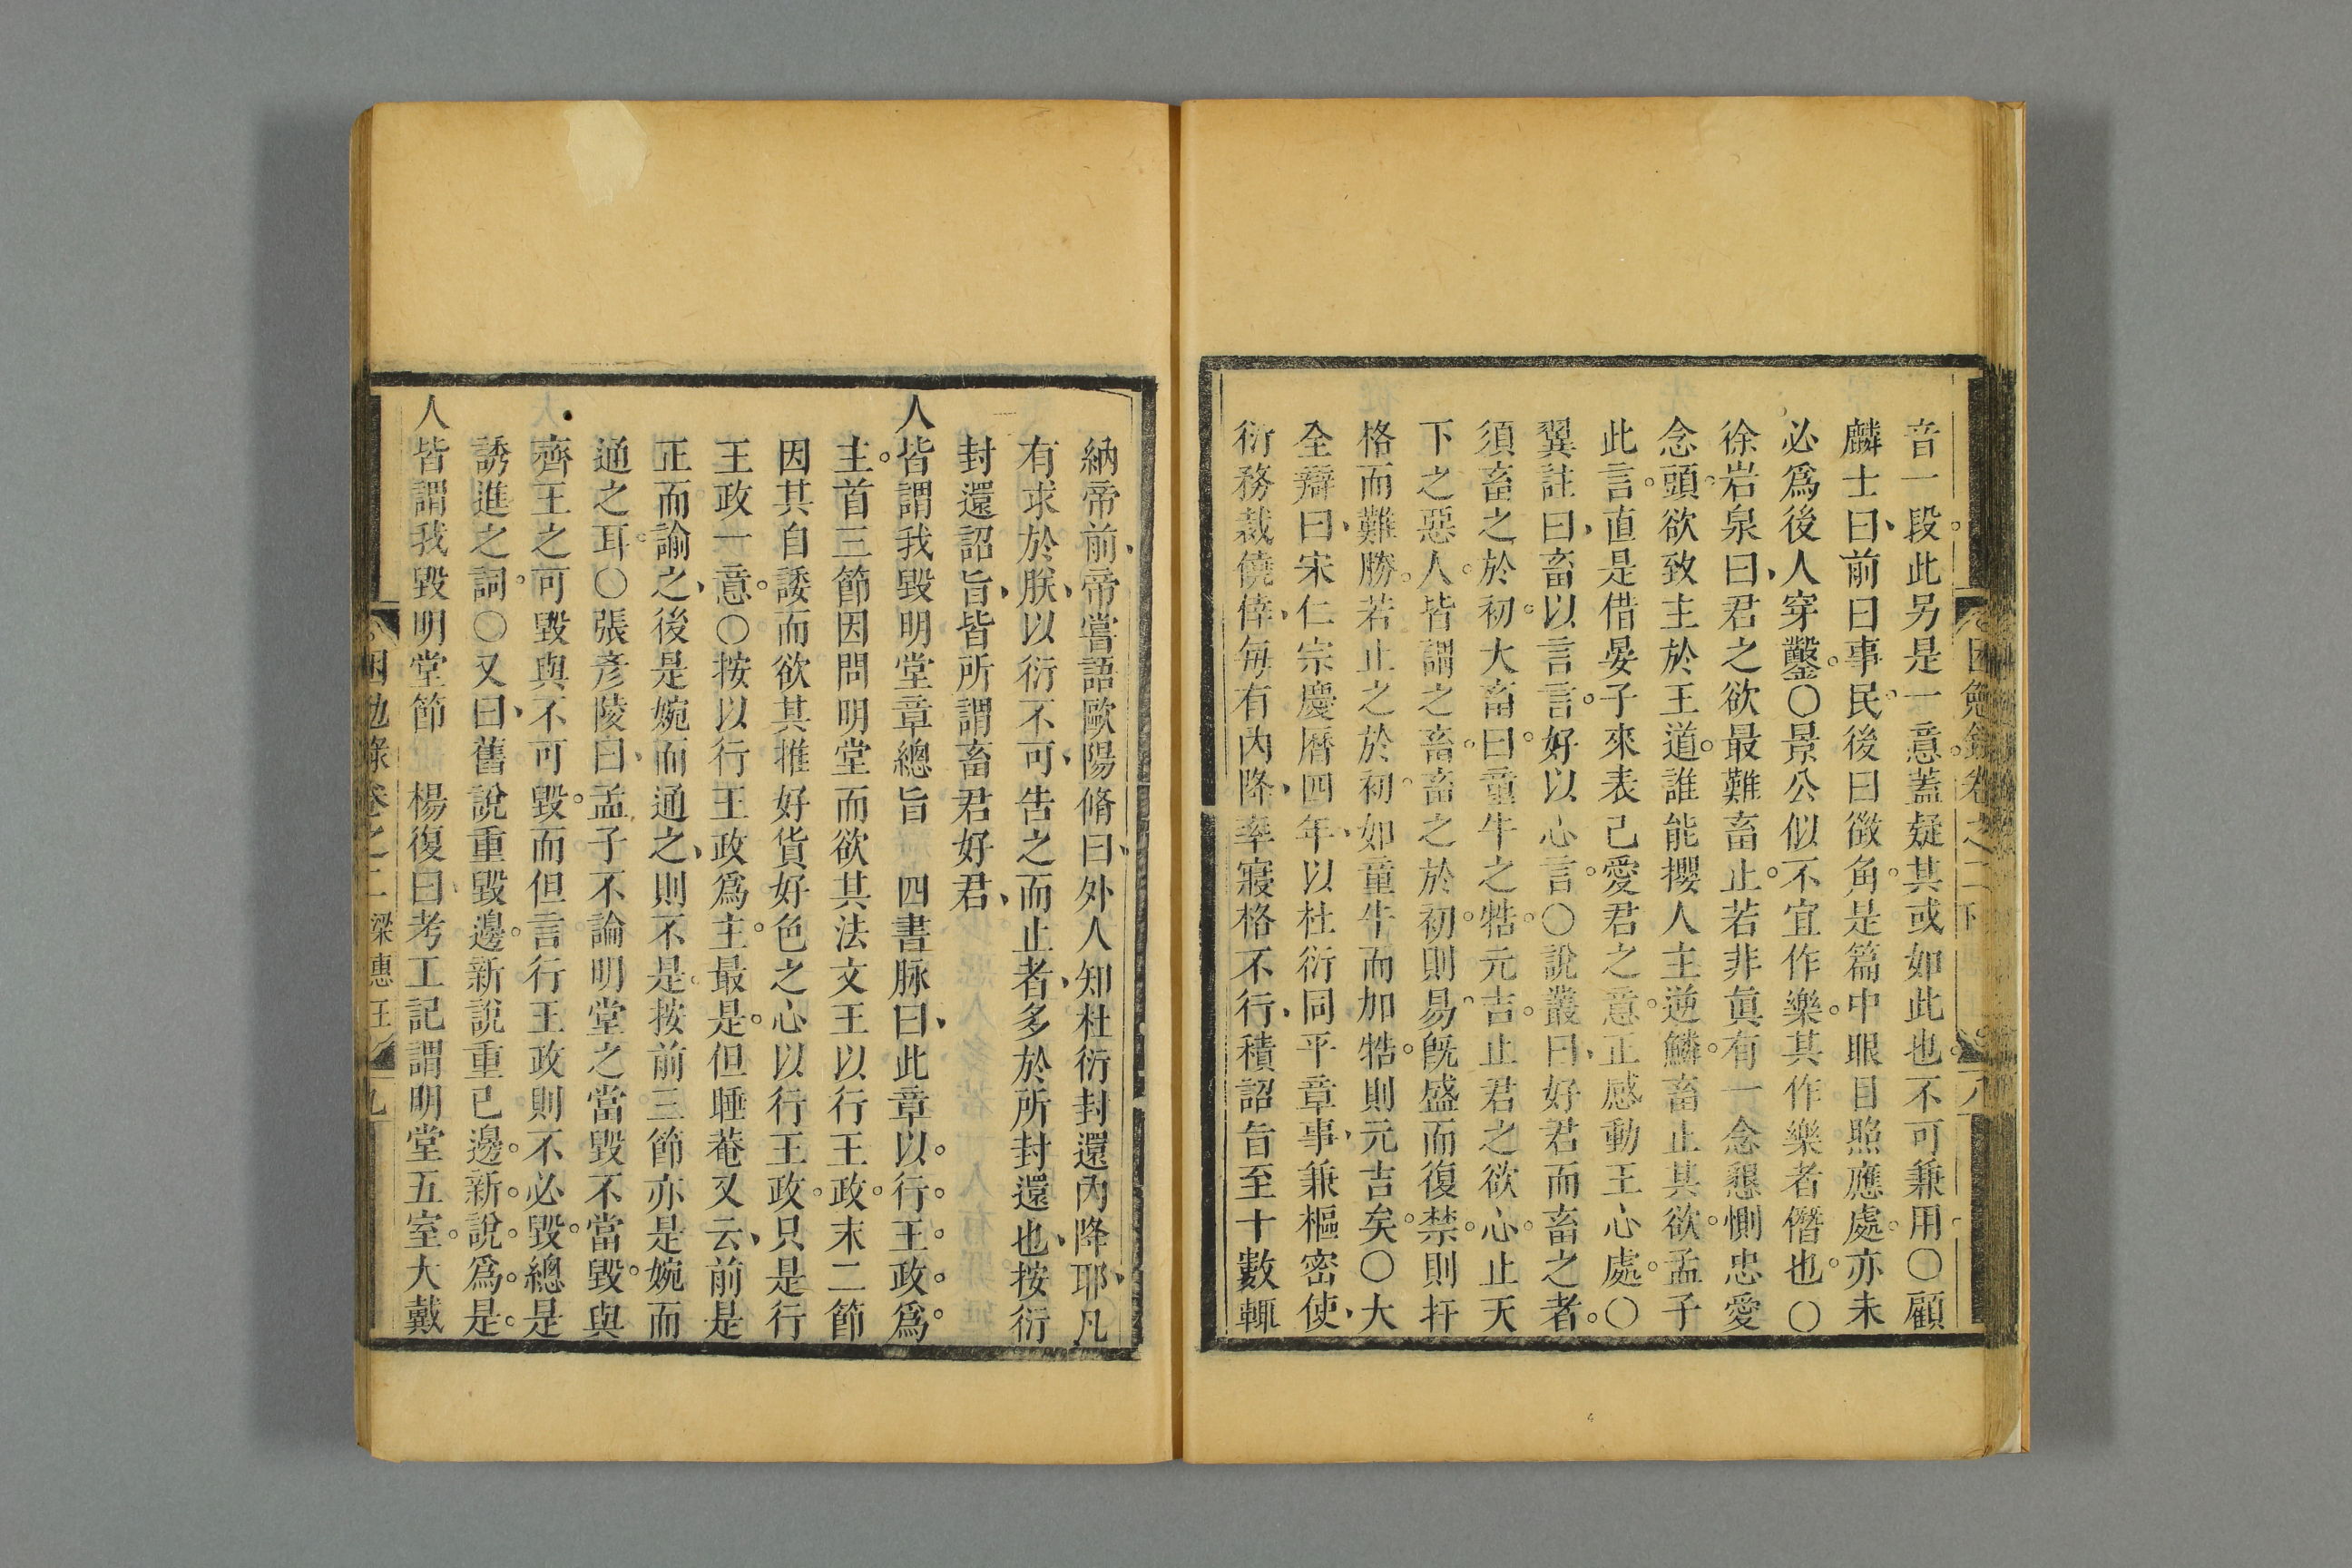 音一段此另是一意蓋疑其或如此也不可兼用○顧
麟士曰前曰事民後曰徵角是篇中眼目照應處亦未
必爲後人穿鑿○景公似不宜作樂其作樂者僭也○
徐岩泉曰君之欲最難畜止若非眞有一念懇惻忠愛
念頭欲致主於王道誰能攖人主逆鱗畜止其欲孟子
此言直是借晏子來表己愛君之意正感動王心處○
翼註曰畜以言言好以心言○說叢曰好君而畜之者
須畜之於初大畜曰童牛之牿元吉止君之欲心止天
下之惡人皆謂之畜畜之於初則易旣盛而復禁則扞
格而難勝若止之於初如童牛而加牿則元吉矣○大
全辯曰宋仁宗慶曆四年以杜衍同平章事兼樞密使
衍務裁僥倖每有內降率寢格不行積詔旨至十數輒
納帝前帝嘗語歐陽脩曰外人知杜衍封還內降耶凡
有求於朕以衍不可告之而止者多於所封還也按衍
封還詔旨皆所謂畜君好君
人皆謂我毀明堂章總旨 四書脉曰此章以行王政爲
主首三節因問明堂而欲其法文王以行王政末二節
因其自諉而欲其推好貨好色之心以行王政只是行
王政一意○按以行王政爲主最是但睡菴又云前是
正而諭之後是婉而通之則不是按前三節亦是婉而
通之耳○張彥陵曰孟子不論明堂之當毀不當毀與
齊王之可毀與不可毀而但言行王政則不必毀總是
誘進之詞○又曰舊說重毀邊新說重已邊新說爲是
人皆謂我毀明堂節 楊復曰考工記謂明堂五室大戴
困勉錄卷之二 梁惠王 九